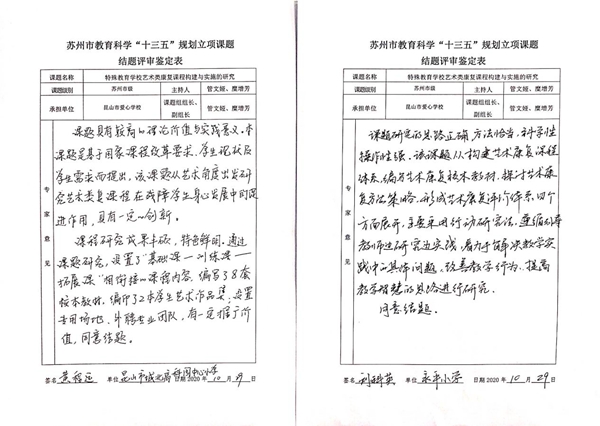 苏州市教育科学“十三五”规划立项课题
结题评审鉴定表
课题名称 特殊教育学校艺术类康复课程构建与实施的研究
课题级别 苏州市级 主持人 管文娅、糜增芳
承担单位 昆山市爱心学校 课题组组长、副组长 管文娅、糜增芳
专家意见
课题具有较高的理论价值与实践意义。本
课题是基于国家课程改革要求、学生现状及
学生需求而提出。该课题从艺术角度出发研
究艺术类康复课程在残障学生身心发展中的促
进作用，具有一定的创新。
课程研究成果丰硕，特色鲜明。通过
课题研究，设置了“基础课—训练课—
拓展课”相衔接的课程内容，编写了8套
校本教材，编印了2本学生艺术作品集；设置
专用场地，外聘专业团队，有一定推广价
值，同意结题。
签名 单位 昆山市城北高科园中心小学 日期 2020 年 10 月 29 日
苏州市教育科学“十三五”规划立项课题
结题评审鉴定表
课题名称 特殊教育学校艺术类康复课程构建与实施的研究
课题级别 苏州市级 主持人 管文娅、糜增芳
承担单位 昆山市爱心学校 课题组组长、副组长 管文娅、糜增芳
专家意见
课题研究的思路正确，方法恰当，科学性
操作性强。该课题从构建艺术康复课程
体系，编写艺术康复校本教材，探讨艺术康
复方法策略，形成艺术康复评价体系四个
方面展开，主要采用行动研究法，遵循引导
教师边研究边实践，着力于解决教学实
践中的具体问题，改善教学行为，提高
教学智慧的思路进行研究。
同意结题。
签名 单位 日期 2020 年 10 月 29 日